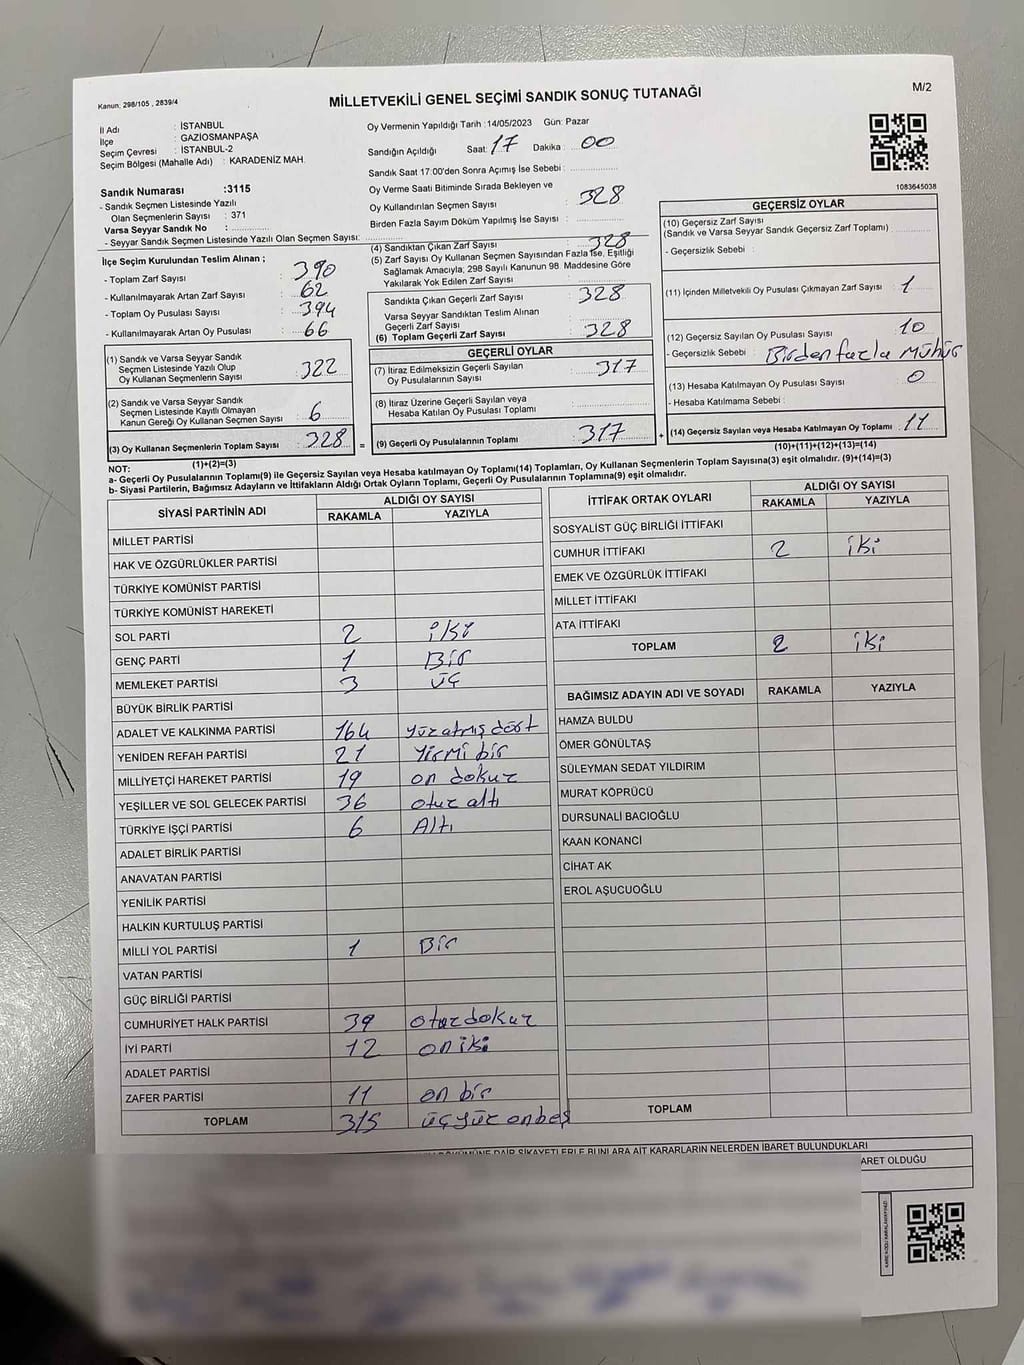 Kanun: 298/105 , 2839/4
MİLLETVEKİLİ GENEL SEÇİMİ SANDIK SONUÇ TUTANAĞI
M/2
İl Adı : İSTANBUL
İlçe : GAZİOSMANPAŞA
Seçim Çevresi : İSTANBUL-2
Seçim Bölgesi (Mahalle Adı) : KARADENİZ MAH.
Sandık Numarası :3115
- Sandık Seçmen Listesinde Yazılı
Olan Seçmenlerin Sayısı : 371
Varsa Seyyar Sandık No :
- Seyyar Sandık Seçmen Listesinde Yazılı Olan Seçmen Sayısı:
Oy Vermenin Yapıldığı Tarih :14/05/2023 Gün: Pazar
Sandığın Açıldığı Saat: 17 Dakika : 00
Sandık Saat 17:00'den Sonra Açımış İse Sebebi :
Oy Verme Saati Bitiminde Sırada Bekleyen ve
Oy Kullandırılan Seçmen Sayısı : 328
Birden Fazla Sayım Döküm Yapılmış İse Sayısı :
1083645038
İlçe Seçim Kurulundan Teslim Alınan ;
- Toplam Zarf Sayısı : 390
- Kullanılmayarak Artan Zarf Sayısı : 62
- Toplam Oy Pusulası Sayısı : 394
- Kullanılmayarak Artan Oy Pusulası : 66
(1) Sandık ve Varsa Seyyar Sandık
Seçmen Listesinde Yazılı Olup
Oy Kullanan Seçmenlerin Sayısı : 322
(2) Sandık ve Varsa Seyyar Sandık
Seçmen Listesinde Kayıtlı Olmayan
Kanun Gereği Oy Kullanan Seçmen Sayısı : 6
(3) Oy Kullanan Seçmenlerin Toplam Sayısı : 328
(1)+(2)=(3)
(4) Sandıktan Çıkan Zarf Sayısı : 328
(5) Zarf Sayısı Oy Kullanan Seçmen Sayısından Fazla İse, Eşitliği
Sağlamak Amacıyla, 298 Sayılı Kanunun 98. Maddesine Göre
Yakılarak Yok Edilen Zarf Sayısı :
Sandıkta Çıkan Geçerli Zarf Sayısı : 328
Varsa Seyyar Sandıktan Teslim Alınan
Geçerli Zarf Sayısı :
(6) Toplam Geçerli Zarf Sayısı : 328
GEÇERLİ OYLAR
(7) İtiraz Edilmeksizin Geçerli Sayılan
Oy Pusulalarının Sayısı : 317
(8) İtiraz Üzerine Geçerli Sayılan veya
Hesaba Katılan Oy Pusulası Toplamı :
= (9) Geçerli Oy Pusulalarının Toplamı : 317
GEÇERSİZ OYLAR
(10) Geçersiz Zarf Sayısı
(Sandık ve Varsa Seyyar Sandık Geçersiz Zarf Toplamı) :
- Geçersizlik Sebebi :
(11) İçinden Milletvekili Oy Pusulası Çıkmayan Zarf Sayısı : 1
(12) Geçersiz Sayılan Oy Pusulası Sayısı : 10
- Geçersizlik Sebebi : Birden fazla Mühür
(13) Hesaba Katılmayan Oy Pusulası Sayısı : 0
- Hesaba Katılmama Sebebi :
+ (14) Geçersiz Sayılan veya Hesaba Katılmayan Oy Toplamı : 11
(10)+(11)+(12)+(13)=(14)
NOT:
a- Geçerli Oy Pusulalarının Toplamı(9) ile Geçersiz Sayılan veya Hesaba katılmayan Oy Toplamı(14) Toplamları, Oy Kullanan Seçmenlerin Toplam Sayısına(3) eşit olmalıdır. (9)+(14)=(3)
b- Siyasi Partilerin, Bağımsız Adayların ve İttifakların Aldığı Ortak Oyların Toplamı, Geçerli Oy Pusulalarının Toplamına(9) eşit olmalıdır.
SİYASİ PARTİNİN ADI ALDIĞI OY SAYISI
RAKAMLA YAZIYLA
MİLLET PARTİSİ
HAK VE ÖZGÜRLÜKLER PARTİSİ
TÜRKİYE KOMÜNİST PARTİSİ
TÜRKİYE KOMÜNİST HAREKETİ
SOL PARTİ 2 iki
GENÇ PARTİ 1 Bir
MEMLEKET PARTİSİ 3 üç
BÜYÜK BİRLİK PARTİSİ
ADALET VE KALKINMA PARTİSİ 164 yüzatmışdört
YENİDEN REFAH PARTİSİ 21 Yirmi bir
MİLLİYETÇİ HAREKET PARTİSİ 19 on dokuz
YEŞİLLER VE SOL GELECEK PARTİSİ 36 otuz altı
TÜRKİYE İŞÇİ PARTİSİ 6 Altı
ADALET BİRLİK PARTİSİ
ANAVATAN PARTİSİ
YENİLİK PARTİSİ
HALKIN KURTULUŞ PARTİSİ
MİLLİ YOL PARTİSİ 1 Bir
VATAN PARTİSİ
GÜÇ BİRLİĞİ PARTİSİ
CUMHURİYET HALK PARTİSİ 39 otuzdokuz
İYİ PARTİ 12 on iki
ADALET PARTİSİ
ZAFER PARTİSİ 11 on bir
TOPLAM 315 üçyüz onbeş
İTTİFAK ORTAK OYLARI ALDIĞI OY SAYISI
RAKAMLA YAZIYLA
SOSYALİST GÜÇ BİRLİĞİ İTTİFAKI
CUMHUR İTTİFAKI 2 iki
EMEK VE ÖZGÜRLÜK İTTİFAKI
MİLLET İTTİFAKI
ATA İTTİFAKI
TOPLAM 2 iki
BAĞIMSIZ ADAYIN ADI VE SOYADI RAKAMLA YAZIYLA
HAMZA BULDU
ÖMER GÖNÜLTAŞ
SÜLEYMAN SEDAT YILDIRIM
MURAT KÖPRÜCÜ
DURSUNALİ BACIOĞLU
KAAN KONANCİ
CİHAT AK
EROL AŞUCUOĞLU
TOPLAM
DÖKÜMÜNE DAİR ŞİKAYETLERLE BUNLARA AİT KARARLARIN NELERDEN İBARET BULUNDUKLARI
ARET OLDUĞU